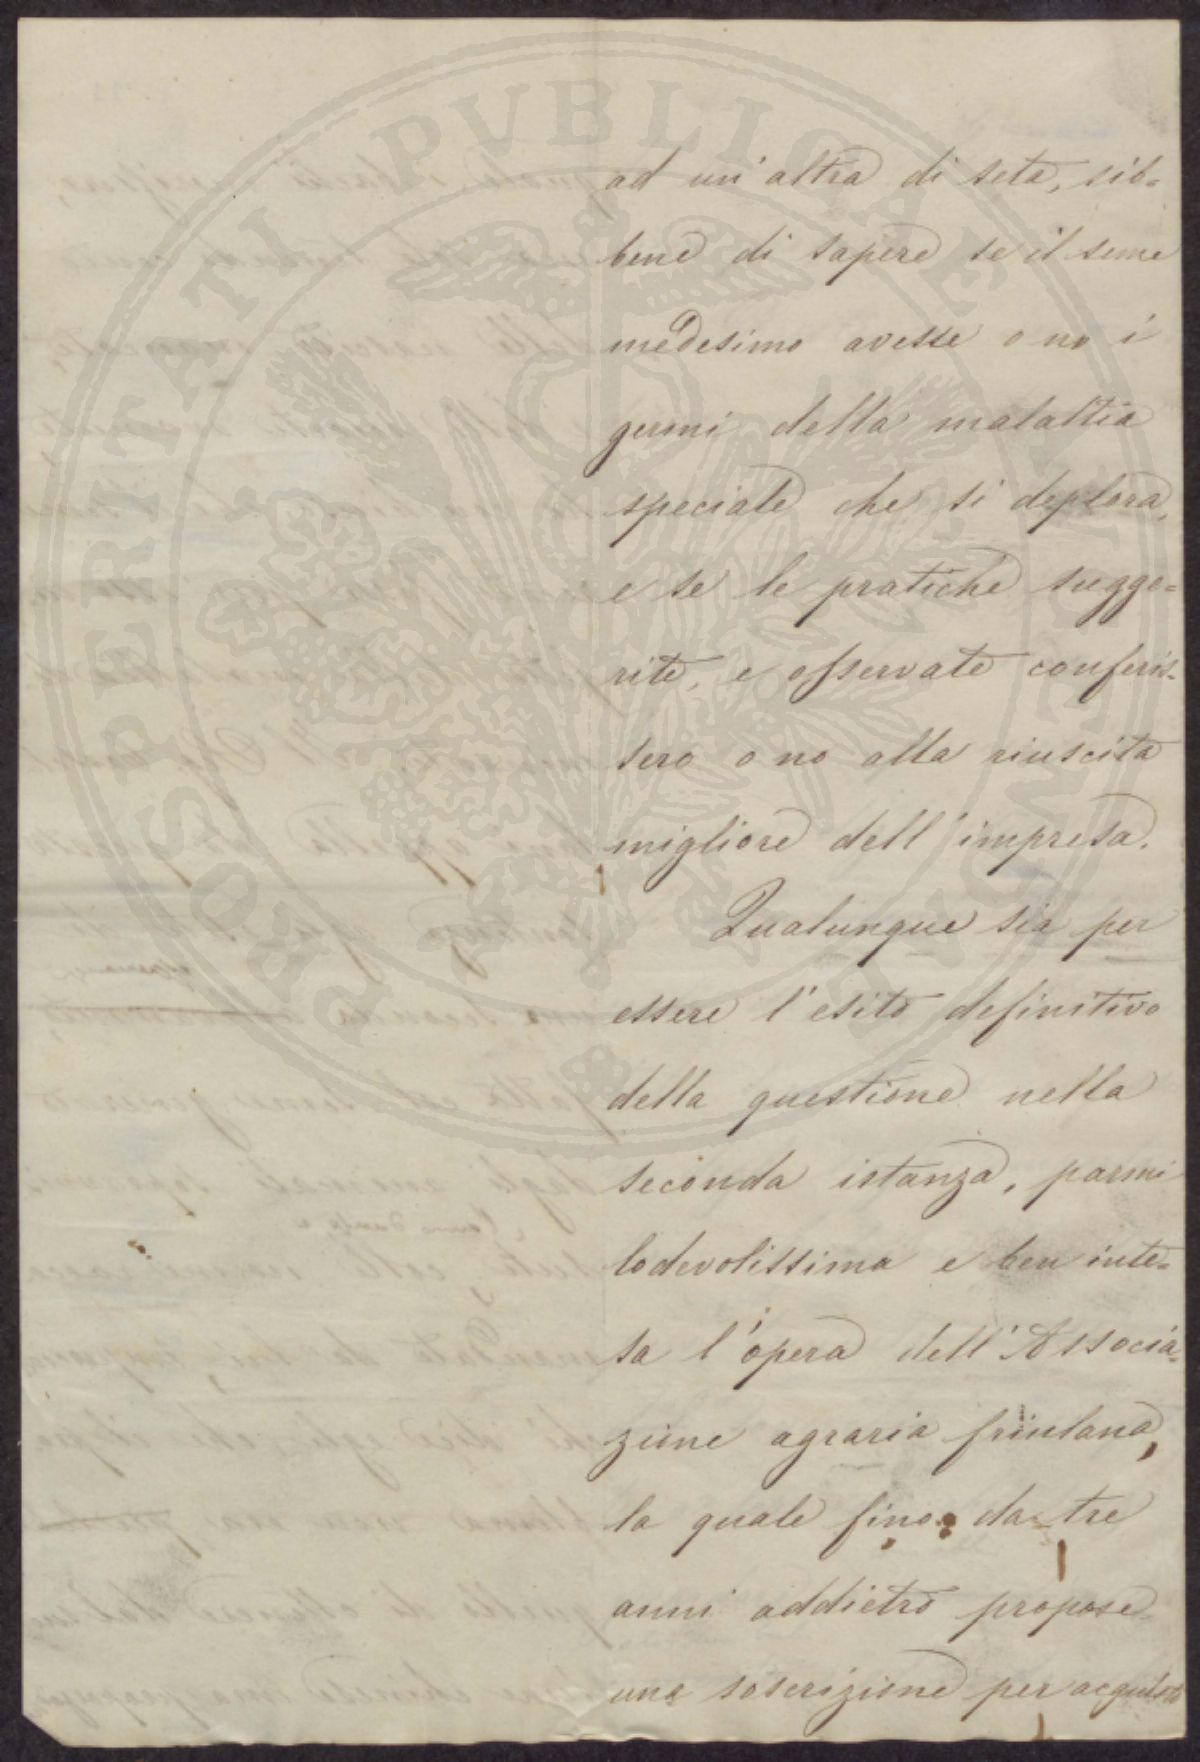 ad un' altra di seta, sib=
bene di sapere se il seme
medesimo avesse o no i
germi della malattia
speciale che si deplora,
e se le pratiche sugge=
rite, e osservate conferis=
sero o no alla riuscita
migliore dell' impresa.
Qualunque sia per
essere l' esito definitivo
della questione nella
seconda istanza, parmi
lodevolissima e ben inte=
sa l' opera dell' Associa=
zione agraria friulana,
la quale fino da tre
anni addietro propose
una soscrizione per acquisto
PROSPERITATI PUBLICAE AUGENDAE